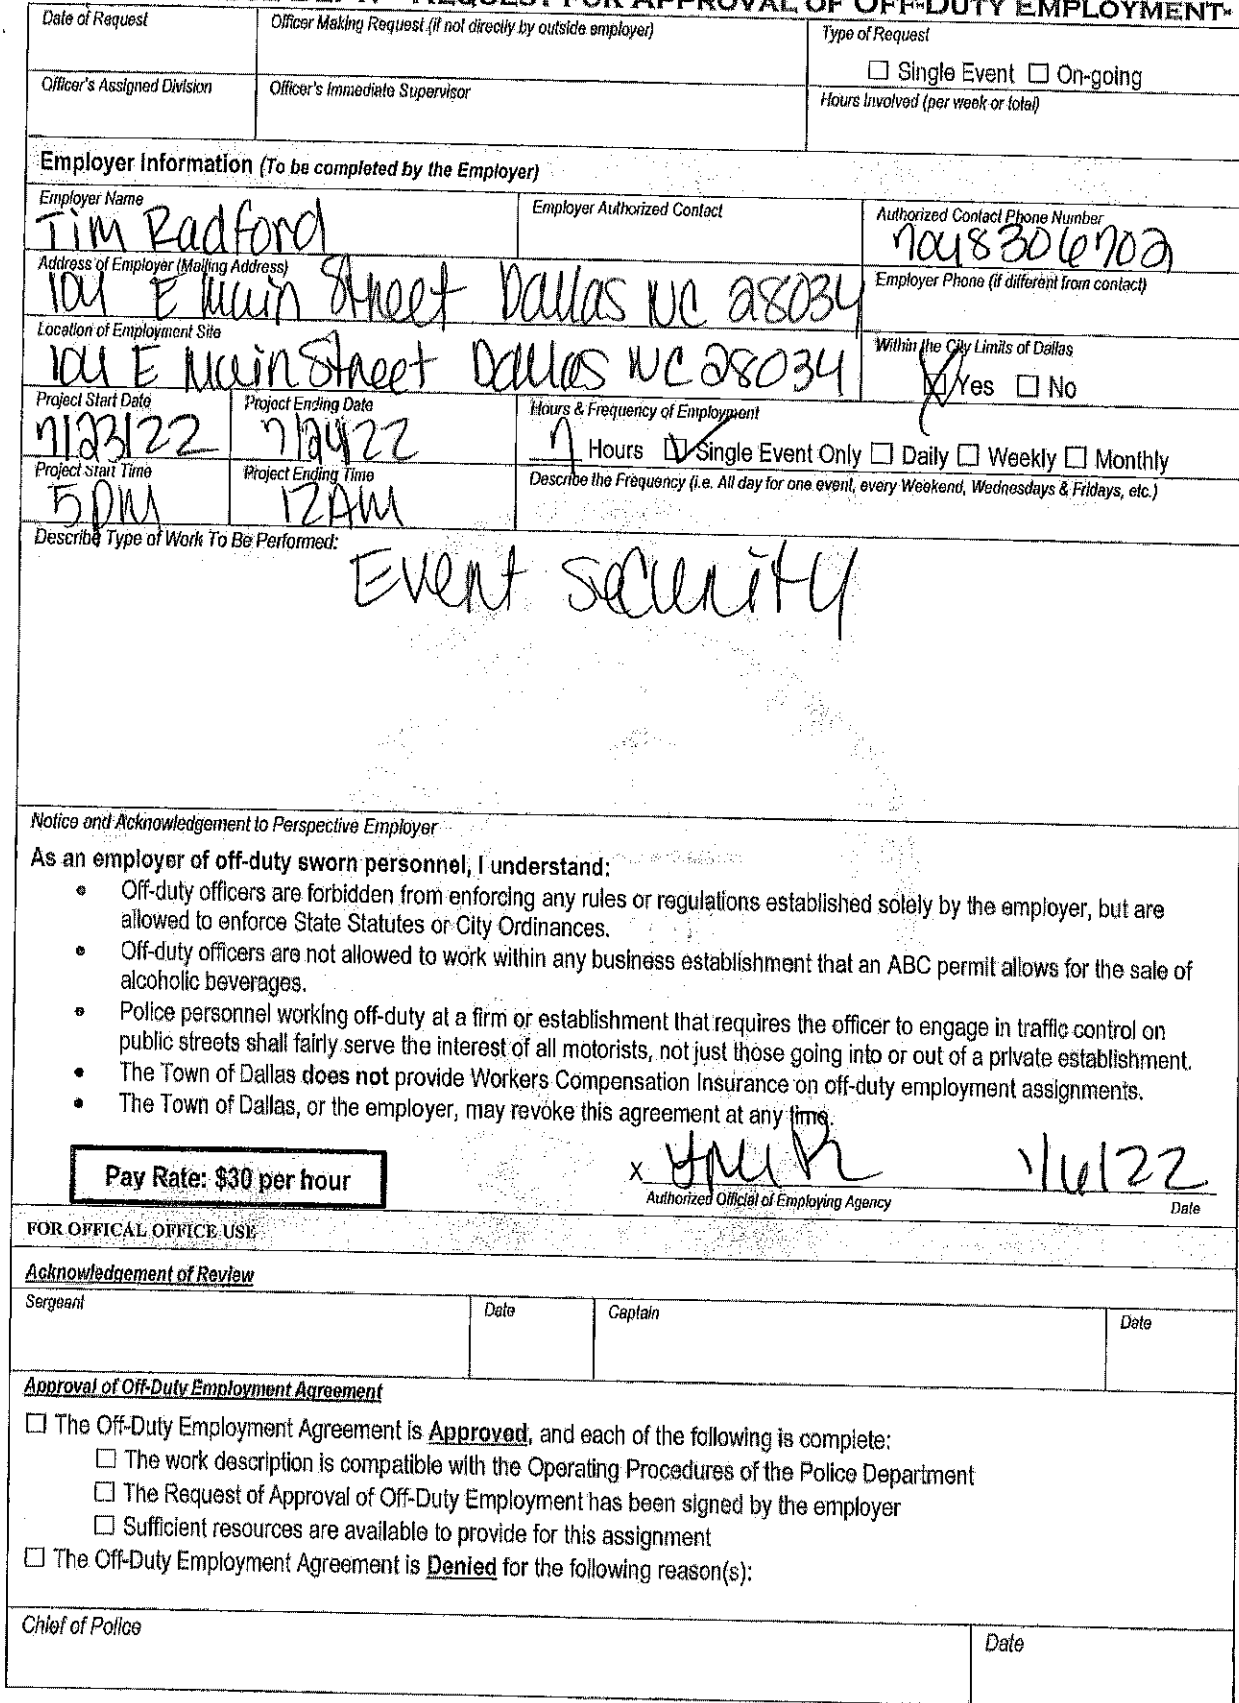 REQUEST FOR APPROVAL OF OFF-DUTY EMPLOYMENT-
Date of Request
Officer Making Request (if not directly by outside employer)
Type of Request
☐ Single Event ☐ On-going
Officer's Assigned Division
Officer's Immediate Supervisor
Hours Involved (per week or total)
Employer Information (To be completed by the Employer)
Employer Name
Tim Radford
Employer Authorized Contact
Authorized Contact Phone Number
7048306702
Address of Employer (Mailing Address)
104 E Main Street Dallas NC 28034
Employer Phone (if different from contact)
Location of Employment Site
104 E Main Street Dallas NC 28034
Within the City Limits of Dallas
☑ Yes ☐ No
Project Start Date
7/23/22
Project Ending Date
7/24/22
Hours & Frequency of Employment
7 Hours ☑ Single Event Only ☐ Daily ☐ Weekly ☐ Monthly
Project Start Time
5PM
Project Ending Time
12AM
Describe the Frequency (i.e. All day for one event, every Weekend, Wednesdays & Fridays, etc.)
Describe Type of Work To Be Performed:
Event Security
Notice and Acknowledgement to Perspective Employer
As an employer of off-duty sworn personnel, I understand:
• Off-duty officers are forbidden from enforcing any rules or regulations established solely by the employer, but are
allowed to enforce State Statutes or City Ordinances.
• Off-duty officers are not allowed to work within any business establishment that an ABC permit allows for the sale of
alcoholic beverages.
• Police personnel working off-duty at a firm or establishment that requires the officer to engage in traffic control on
public streets shall fairly serve the interest of all motorists, not just those going into or out of a private establishment.
• The Town of Dallas does not provide Workers Compensation Insurance on off-duty employment assignments.
• The Town of Dallas, or the employer, may revoke this agreement at any time.
Pay Rate: $30 per hour
X
Authorized Official of Employing Agency
1/6/22
Date
FOR OFFICAL OFFICE USE
Acknowledgement of Review
Sergeant
Date
Captain
Date
Approval of Off-Duty Employment Agreement
☐ The Off-Duty Employment Agreement is Approved, and each of the following is complete:
☐ The work description is compatible with the Operating Procedures of the Police Department
☐ The Request of Approval of Off-Duty Employment has been signed by the employer
☐ Sufficient resources are available to provide for this assignment
☐ The Off-Duty Employment Agreement is Denied for the following reason(s):
Chief of Police
Date